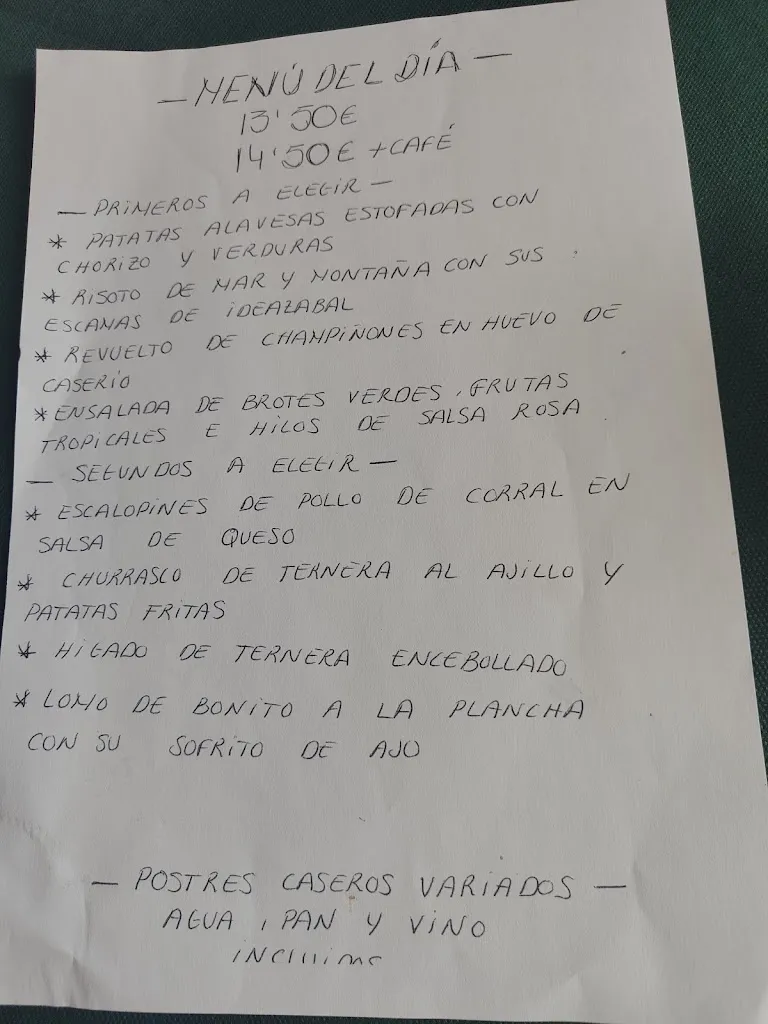 — MENÚ DEL DÍA —
13'50€
14'50€ + CAFÉ
— PRIMEROS A ELEGIR —
* PATATAS ALAVESAS ESTOFADAS CON
CHORIZO Y VERDURAS
* RISOTO DE MAR Y MONTAÑA CON SUS
ESCAMAS DE IDEAZABAL
* REVUELTO DE CHAMPIÑONES EN HUEVO DE
CASERIO
* ENSALADA DE BROTES VERDES, FRUTAS
TROPICALES E HILOS DE SALSA ROSA
— SEGUNDOS A ELEGIR —
* ESCALOPINES DE POLLO DE CORRAL EN
SALSA DE QUESO
* CHURRASCO DE TERNERA AL AJILLO Y
PATATAS FRITAS
* HIGADO DE TERNERA ENCEBOLLADO
* LOMO DE BONITO A LA PLANCHA
CON SU SOFRITO DE AJO
— POSTRES CASEROS VARIADOS —
AGUA, PAN Y VINO